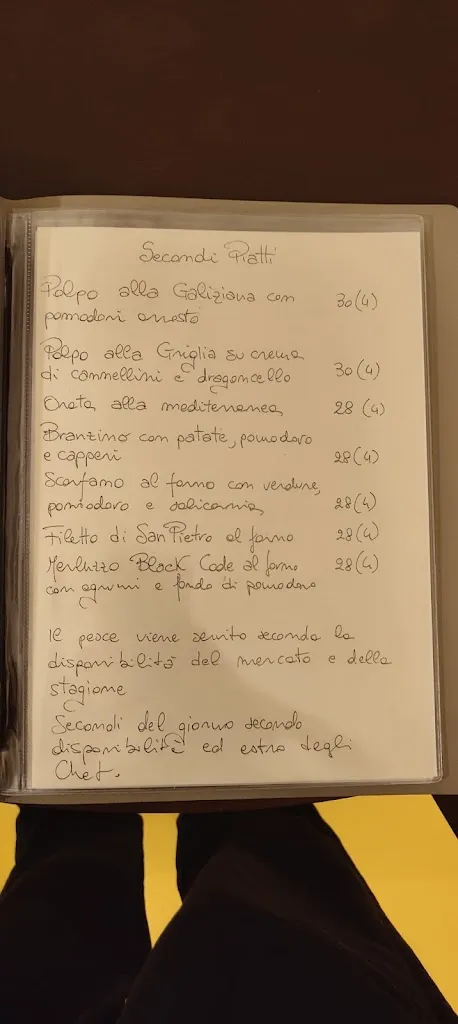 Secondi Piatti
Polpo alla Galiziana con 30 (4)
pomodori arrosto
Polpo alla Griglia su crema
di cannellini e dragoncello 30 (4)
Orata alla mediterranea 28 (4)
Branzino con patate, pomodoro
e capperi 28 (4)
Scorfano al forno con verdure,
pomodoro e salicornia 28 (4)
Filetto di San Pietro al forno 28 (4)
Merluzzo Black Code al forno 28 (4)
con agrumi e fondo di pomodoro
Il pesce viene servito secondo la
disponibilità del mercato e della
stagione
Secondi del giorno secondo
disponibilità ed estro degli
Chef.